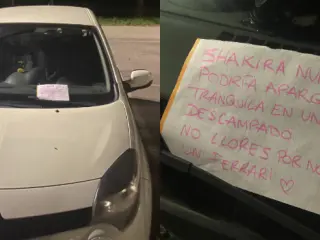 SHAKIRA NU
PODRÍA APARC
TRANQUILA EN UN
DESCAMPADO
NO LLORES POR NO
UN FERRARI ♡